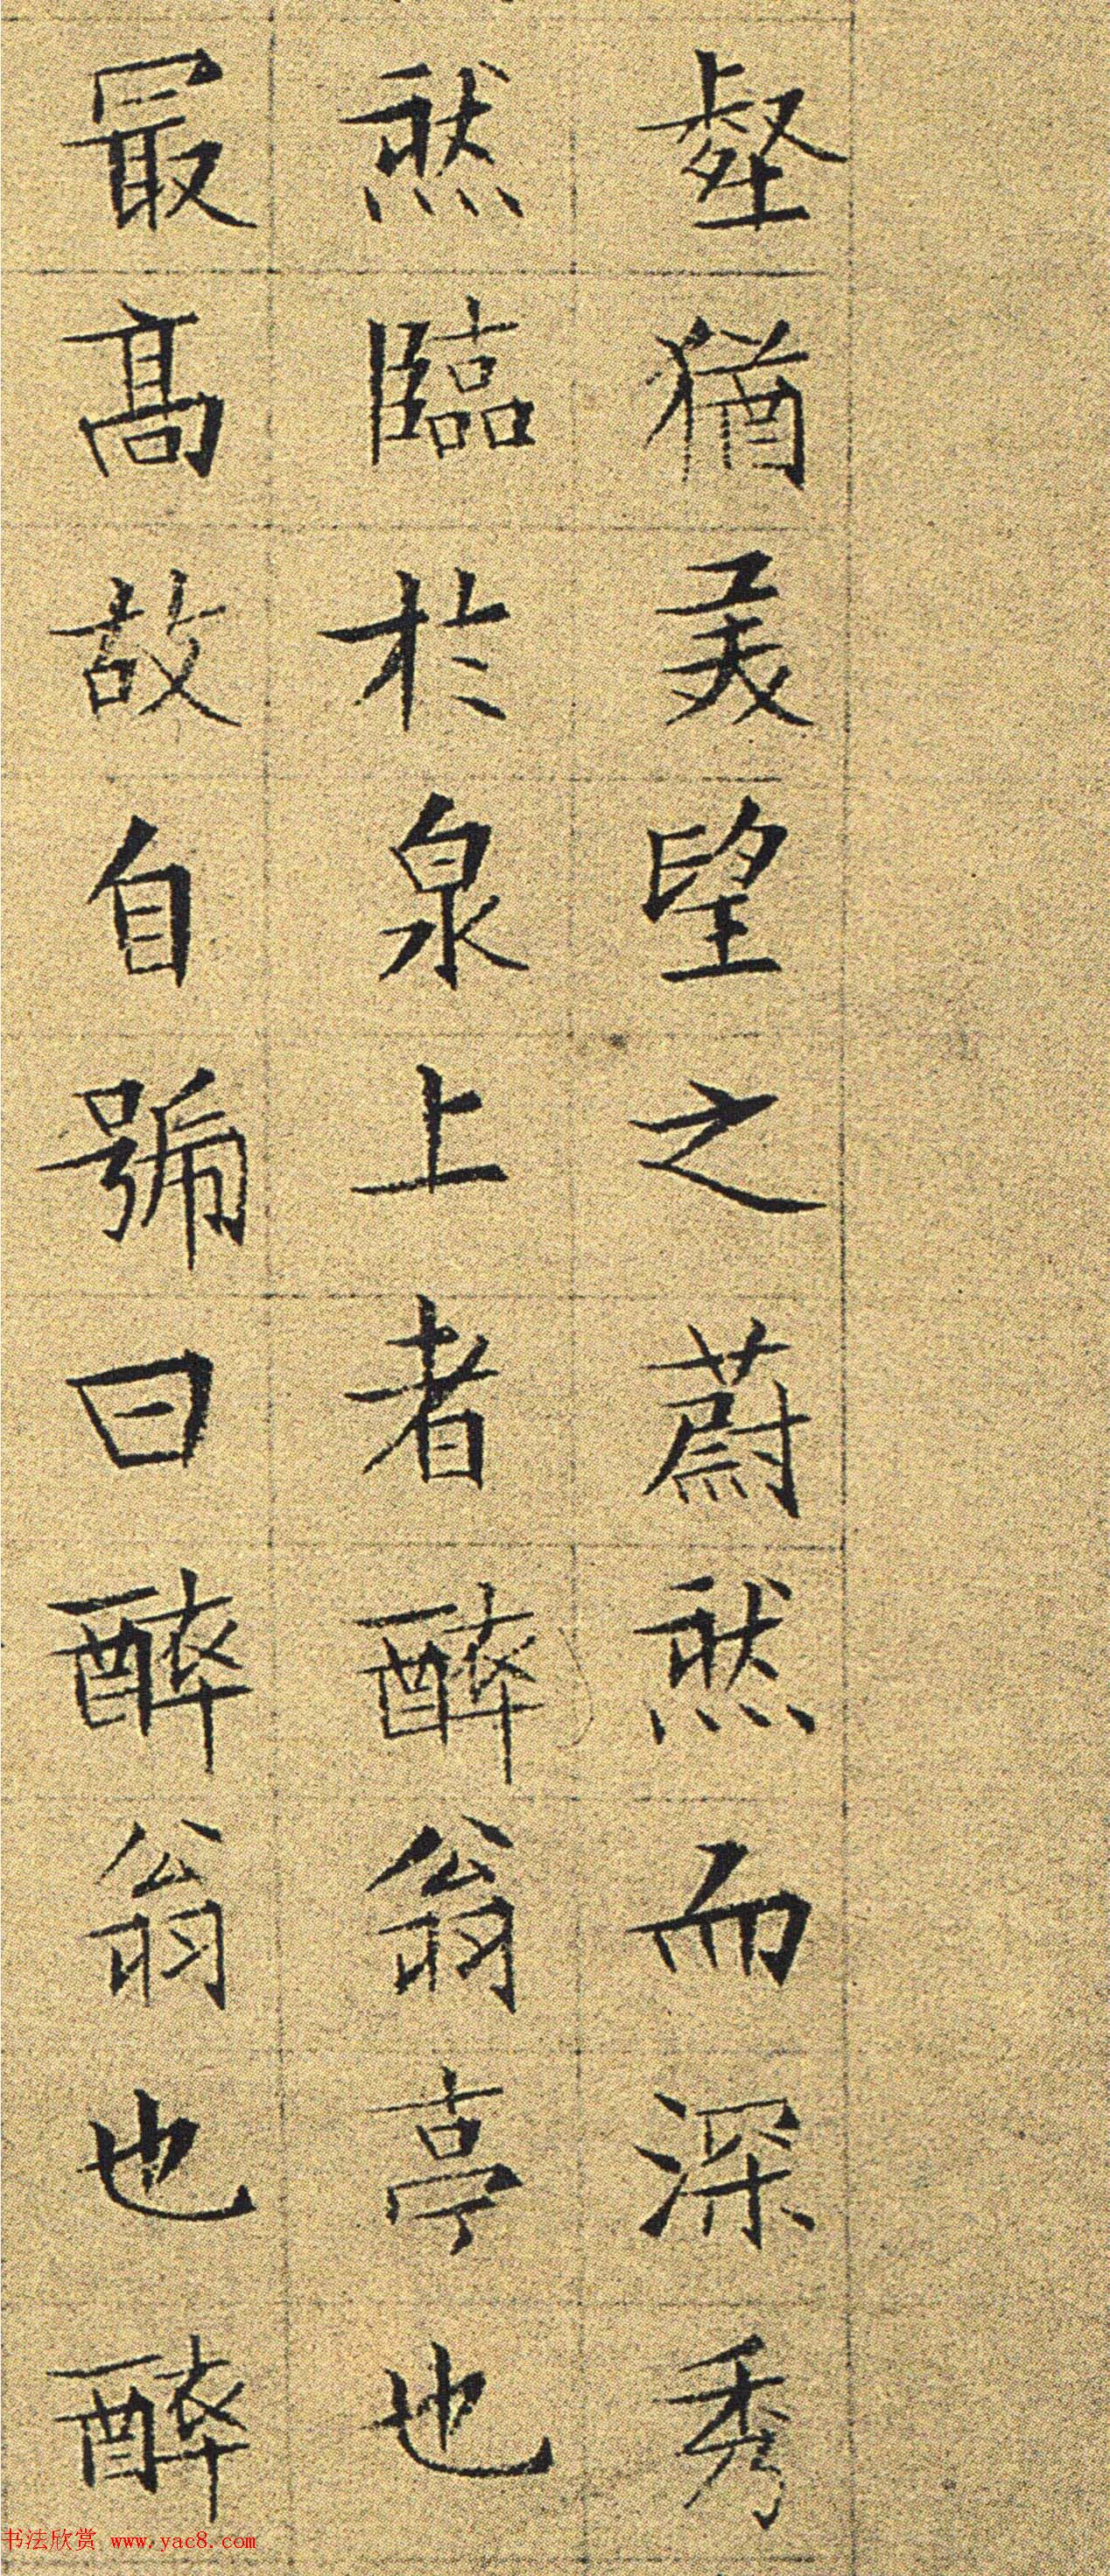 壑猶美望之蔚然而深秀
然臨於泉上者醉翁亭也
最髙故自號曰醉翁也醉
书法欣赏 www.yac8.com